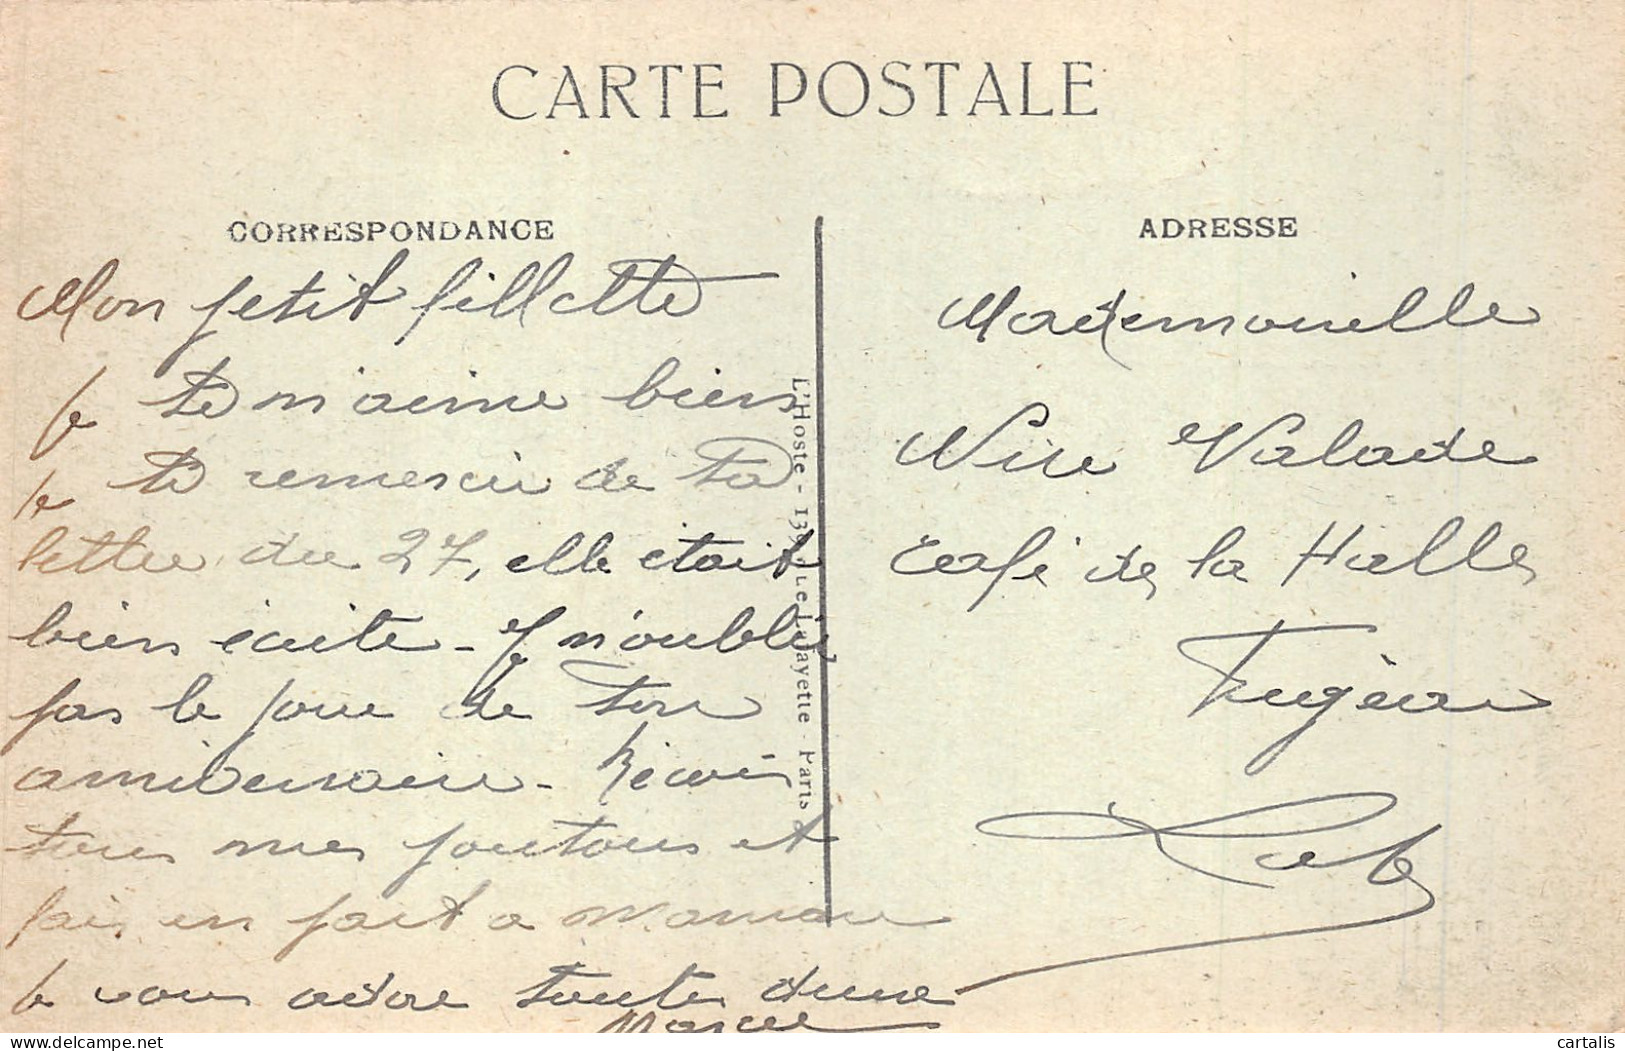 CARTE POSTALE
CORRESPONDANCE
ADRESSE
Mon petit fillette
Je te m'aime bien
Je te remercie de ta
lettre du 27, elle etait
bien écrite - J n'oublie
pas le jour de ton
anniversaire - Recois
tous mes poutous et
fais en part a maman
Je vous adore toutes deux
Marcel
L'Hoste - 139, Lafayette - Paris
Mademoiselle
Valade
Café de la Halle
Figeac
Lot
delcampe.net
cartalis